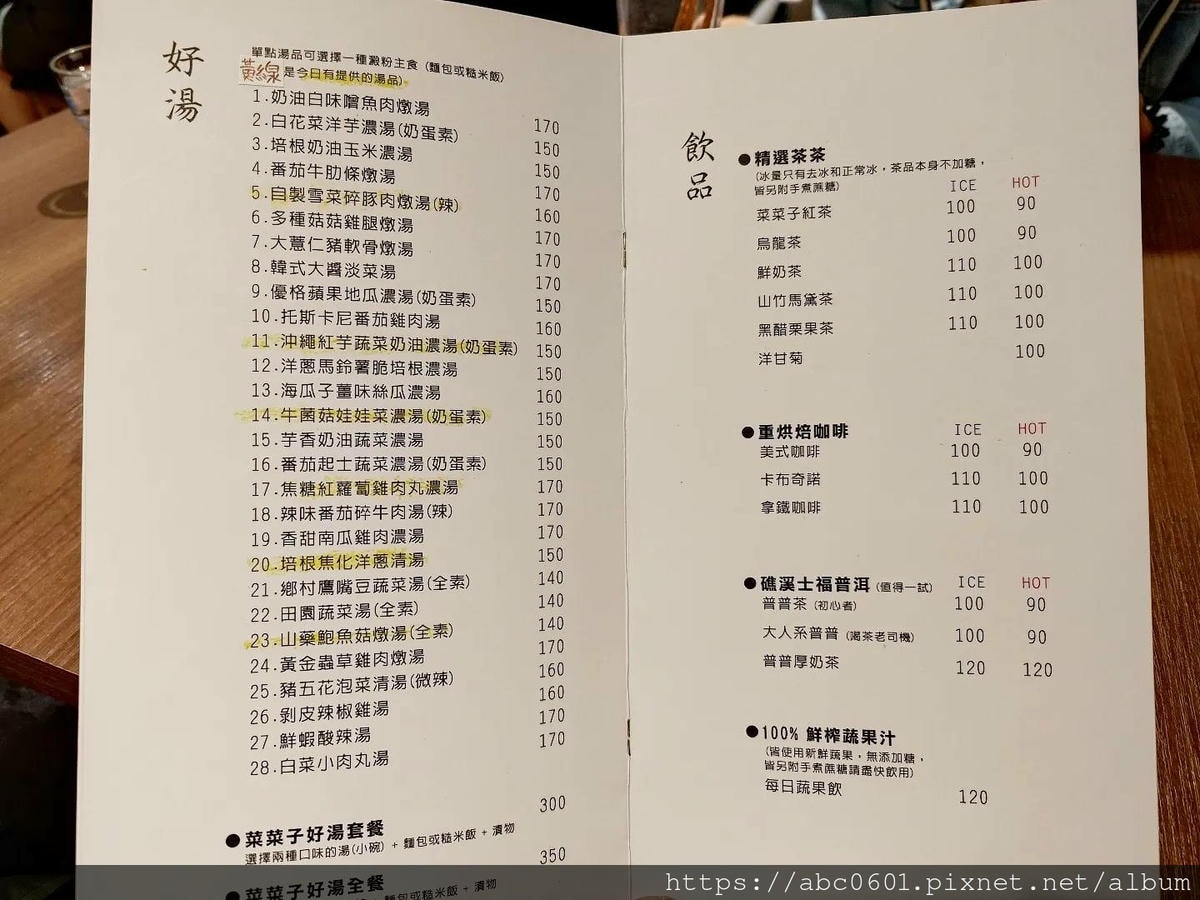 好湯
單點湯品可選擇一種澱粉主食(麵包或糙米飯)
黃線是今日有提供的湯品)
1.奶油白味噌魚肉燉湯 170
2.白花菜洋芋濃湯(奶蛋素) 150
3.培根奶油玉米濃湯 150
4.番茄牛肋條燉湯 170
5.自製雪菜碎豚肉燉湯(辣) 160
6.多種菇菇雞腿燉湯 170
7.大薏仁豬軟骨燉湯 170
8.韓式大醬淡菜湯 170
9.優格蘋果地瓜濃湯(奶蛋素) 150
10.托斯卡尼番茄雞肉湯 160
11.沖繩紅芋蔬菜奶油濃湯(奶蛋素) 150
12.洋蔥馬鈴薯脆培根濃湯 150
13.海瓜子薑味絲瓜濃湯 160
14.牛菌菇娃娃菜濃湯(奶蛋素) 150
15.芋香奶油蔬菜濃湯 150
16.番茄起士蔬菜濃湯(奶蛋素) 150
17.焦糖紅蘿蔔雞肉丸濃湯 170
18.辣味番茄碎牛肉湯(辣) 170
19.香甜南瓜雞肉濃湯 170
20.培根焦化洋蔥清湯 150
21.鄉村鷹嘴豆蔬菜湯(全素) 140
22.田園蔬菜湯(全素) 140
23.山藥鮑魚菇燉湯(全素) 140
24.黃金蟲草雞肉燉湯 170
25.豬五花泡菜清湯(微辣) 160
26.剝皮辣椒雞湯 160
27.鮮蝦酸辣湯 170
28.白菜小肉丸湯 170
●菜菜子好湯套餐 300
選擇兩種口味的湯(小碗) + 麵包或糙米飯 + 漬物
●菜菜子好湯全餐 350
麵包或糙米飯 + 漬物
飲品
●精選茶茶
(冰量只有去冰和正常冰，茶品本身不加糖，
皆另附手煮蔗糖) ICE HOT
菜菜子紅茶 100 90
烏龍茶 100 90
鮮奶茶 110 100
山竹馬黛茶 110 100
黑醋栗果茶 110 100
洋甘菊 100
●重烘焙咖啡 ICE HOT
美式咖啡 100 90
卡布奇諾 110 100
拿鐵咖啡 110 100
●礁溪士福普洱(值得一試) ICE HOT
普普茶(初心者) 100 90
大人系普普(喝茶老司機) 100 90
普普厚奶茶 120 120
●100% 鮮榨蔬果汁
(皆使用新鮮蔬果，無添加糖，
皆另附手煮蔗糖請盡快飲用)
每日蔬果飲 120
https://abc0601.pixnet.net/album